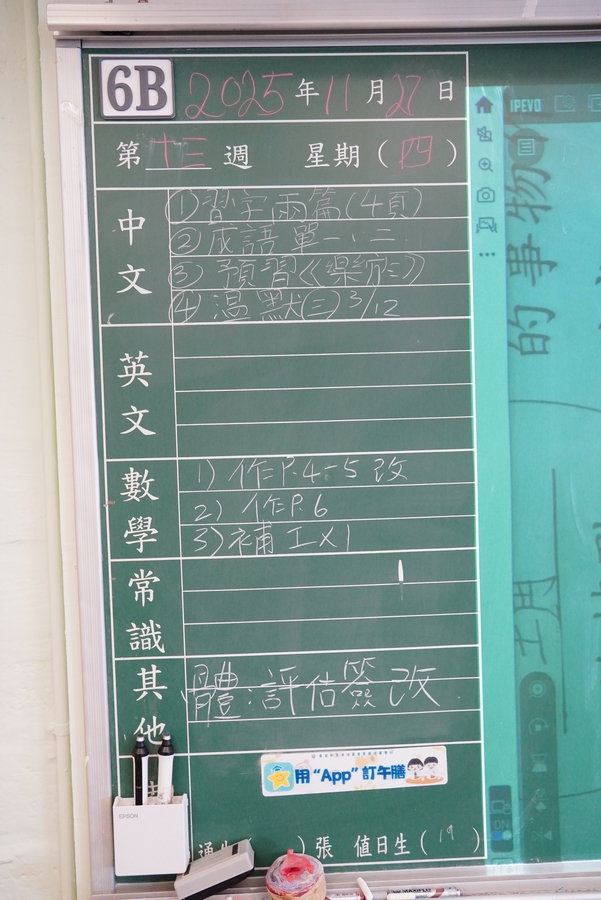 6B 2025年11月27日
第十三週 星期(四)
中文
①習字兩篇(4頁)
②成語單一、二
③預習《樂施》
④温默㊂ 3/12
英文
數學
1) 作P.4-5 改
2) 作P.6
3) 補工X1
常識
其他
體:評估簽改
用“App”訂午膳
通告( )張 值日生(19)
EPSON
IPEVO
的事物